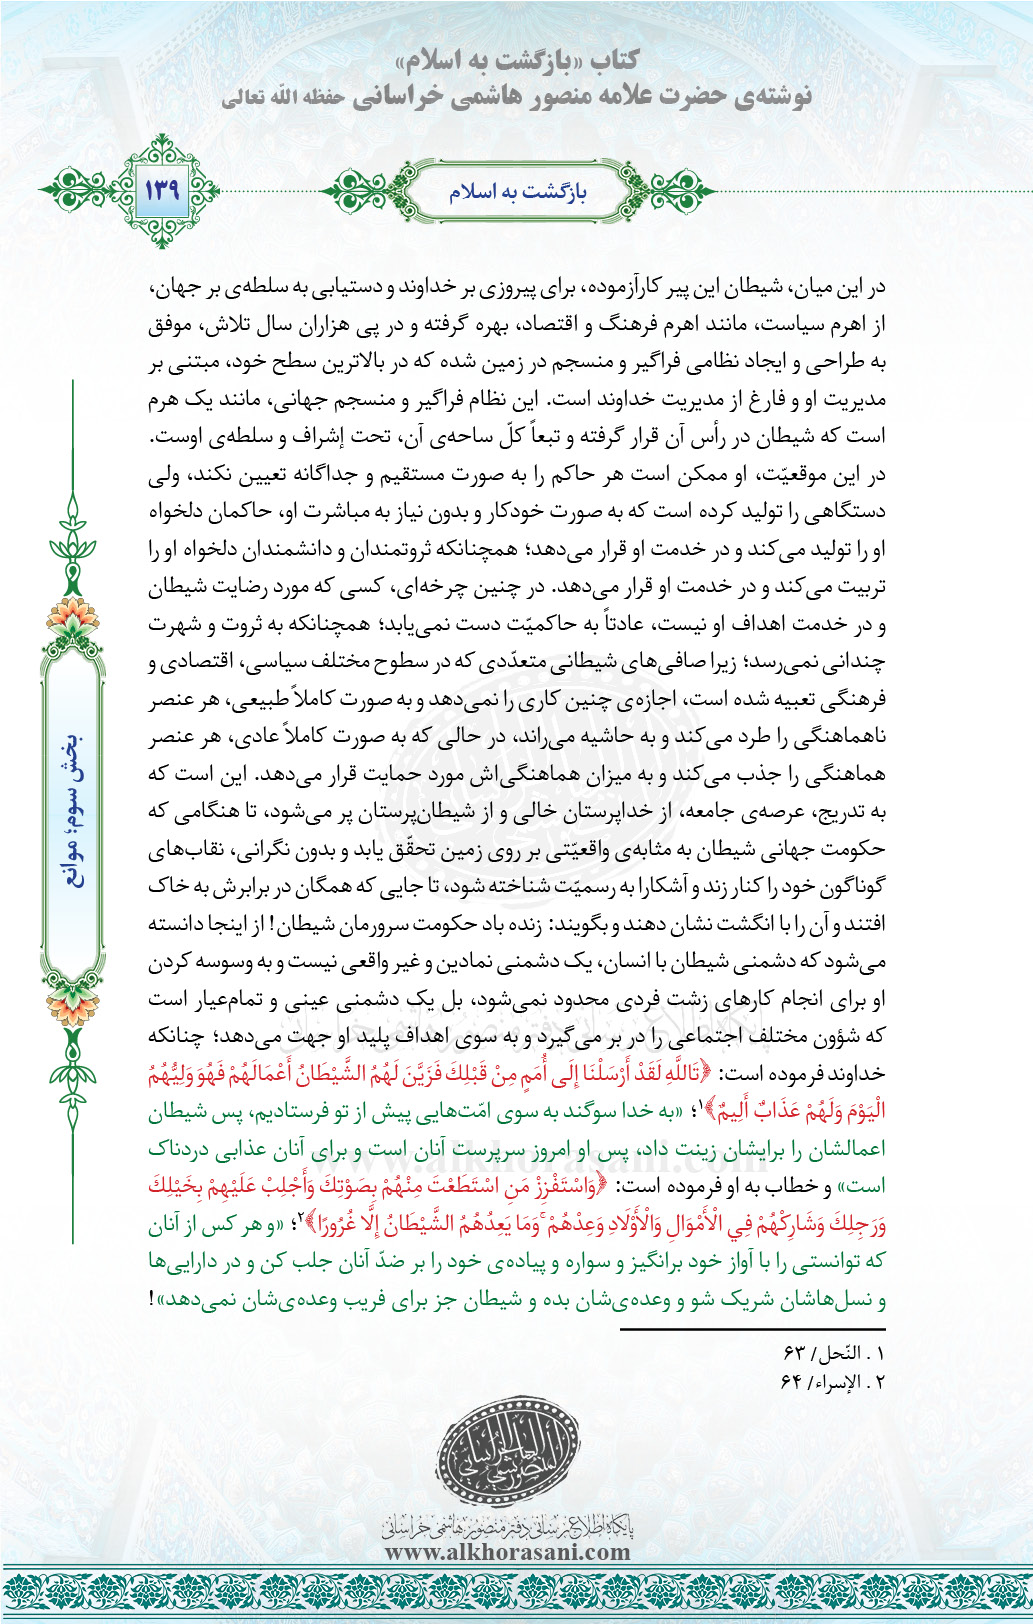 کتاب «بازگشت به اسلام»
نوشته‌ی حضرت علامه منصور هاشمی خراسانی حفظه الله تعالی
۱۳۹
بازگشت به اسلام
در این میان، شیطان این پیر کارآزموده، برای پیروزی بر خداوند و دستیابی به سلطه‌ی بر جهان،
از اهرم سیاست، مانند اهرم فرهنگ و اقتصاد، بهره گرفته و در پی هزاران سال تلاش، موفق
به طراحی و ایجاد نظامی فراگیر و منسجم در زمین شده که در بالاترین سطح خود، مبتنی بر
مدیریت او و فارغ از مدیریت خداوند است. این نظام فراگیر و منسجم جهانی، مانند یک هرم
است که شیطان در رأس آن قرار گرفته و تبعاً کلّ ساحه‌ی آن، تحت إشراف و سلطه‌ی اوست.
در این موقعیّت، او ممکن است هر حاکم را به صورت مستقیم و جداگانه تعیین نکند، ولی
دستگاهی را تولید کرده است که به صورت خودکار و بدون نیاز به مباشرت او، حاکمان دلخواه
او را تولید می‌کند و در خدمت او قرار می‌دهد؛ همچنانکه ثروتمندان و دانشمندان دلخواه او را
تربیت می‌کند و در خدمت او قرار می‌دهد. در چنین چرخه‌ای، کسی که مورد رضایت شیطان
و در خدمت اهداف او نیست، عادتاً به حاکمیّت دست نمی‌یابد؛ همچنانکه به ثروت و شهرت
چندانی نمی‌رسد؛ زیرا صافی‌های شیطانی متعدّدی که در سطوح مختلف سیاسی، اقتصادی و
فرهنگی تعبیه شده است، اجازه‌ی چنین کاری را نمی‌دهد و به صورت کاملاً طبیعی، هر عنصر
ناهماهنگی را طرد می‌کند و به حاشیه می‌راند، در حالی که به صورت کاملاً عادی، هر عنصر
هماهنگی را جذب می‌کند و به میزان هماهنگی‌اش مورد حمایت قرار می‌دهد. این است که
به تدریج، عرصه‌ی جامعه، از خداپرستان خالی و از شیطان‌پرستان پر می‌شود، تا هنگامی که
حکومت جهانی شیطان به مثابه‌ی واقعیّتی بر روی زمین تحقّق یابد و بدون نگرانی، نقاب‌های
گوناگون خود را کنار زند و آشکارا به رسمیّت شناخته شود، تا جایی که همگان در برابرش به خاک
افتند و آن را با انگشت نشان دهند و بگویند: زنده باد حکومت سرورمان شیطان! از اینجا دانسته
می‌شود که دشمنی شیطان با انسان، یک دشمنی نمادین و غیر واقعی نیست و به وسوسه کردن
او برای انجام کارهای زشت فردی محدود نمی‌شود، بل یک دشمنی عینی و تمام‌عیار است
که شؤون مختلف اجتماعی را در بر می‌گیرد و به سوی اهداف پلید او جهت می‌دهد؛ چنانکه
خداوند فرموده است: ﴿تَاللَّهِ لَقَدْ أَرْسَلْنَا إِلَى أُمَمٍ مِنْ قَبْلِكَ فَزَيَّنَ لَهُمُ الشَّيْطَانُ أَعْمَالَهُمْ فَهُوَ وَلِيُّهُمُ
الْيَوْمَ وَلَهُمْ عَذَابٌ أَلِيمٌ﴾۱؛ «به خدا سوگند به سوی امّت‌هایی پیش از تو فرستادیم، پس شیطان
اعمالشان را برایشان زینت داد، پس او امروز سرپرست آنان است و برای آنان عذابی دردناک
است» و خطاب به او فرموده است: ﴿وَاسْتَفْزِزْ مَنِ اسْتَطَعْتَ مِنْهُمْ بِصَوْتِكَ وَأَجْلِبْ عَلَيْهِمْ بِخَيْلِكَ
وَرَجِلِكَ وَشَارِكْهُمْ فِي الْأَمْوَالِ وَالْأَوْلَادِ وَعِدْهُمْ ۚ وَمَا يَعِدُهُمُ الشَّيْطَانُ إِلَّا غُرُورًا﴾۲؛ «و هر کس از آنان
که توانستی را با آواز خود برانگیز و سواره و پیاده‌ی خود را بر ضدّ آنان جلب کن و در دارایی‌ها
و نسل‌هاشان شریک شو و وعده‌ی‌شان بده و شیطان جز برای فریب وعده‌ی‌شان نمی‌دهد»!
۱ . النّحل/ ۶۳
۲ . الإسراء/ ۶۴
بخش سوم؛ موانع
المنصور الهاشمی الخراسانی
پایگاه اطلاع رسانی دفتر منصور هاشمی خراسانی
www.alkhorasani.com